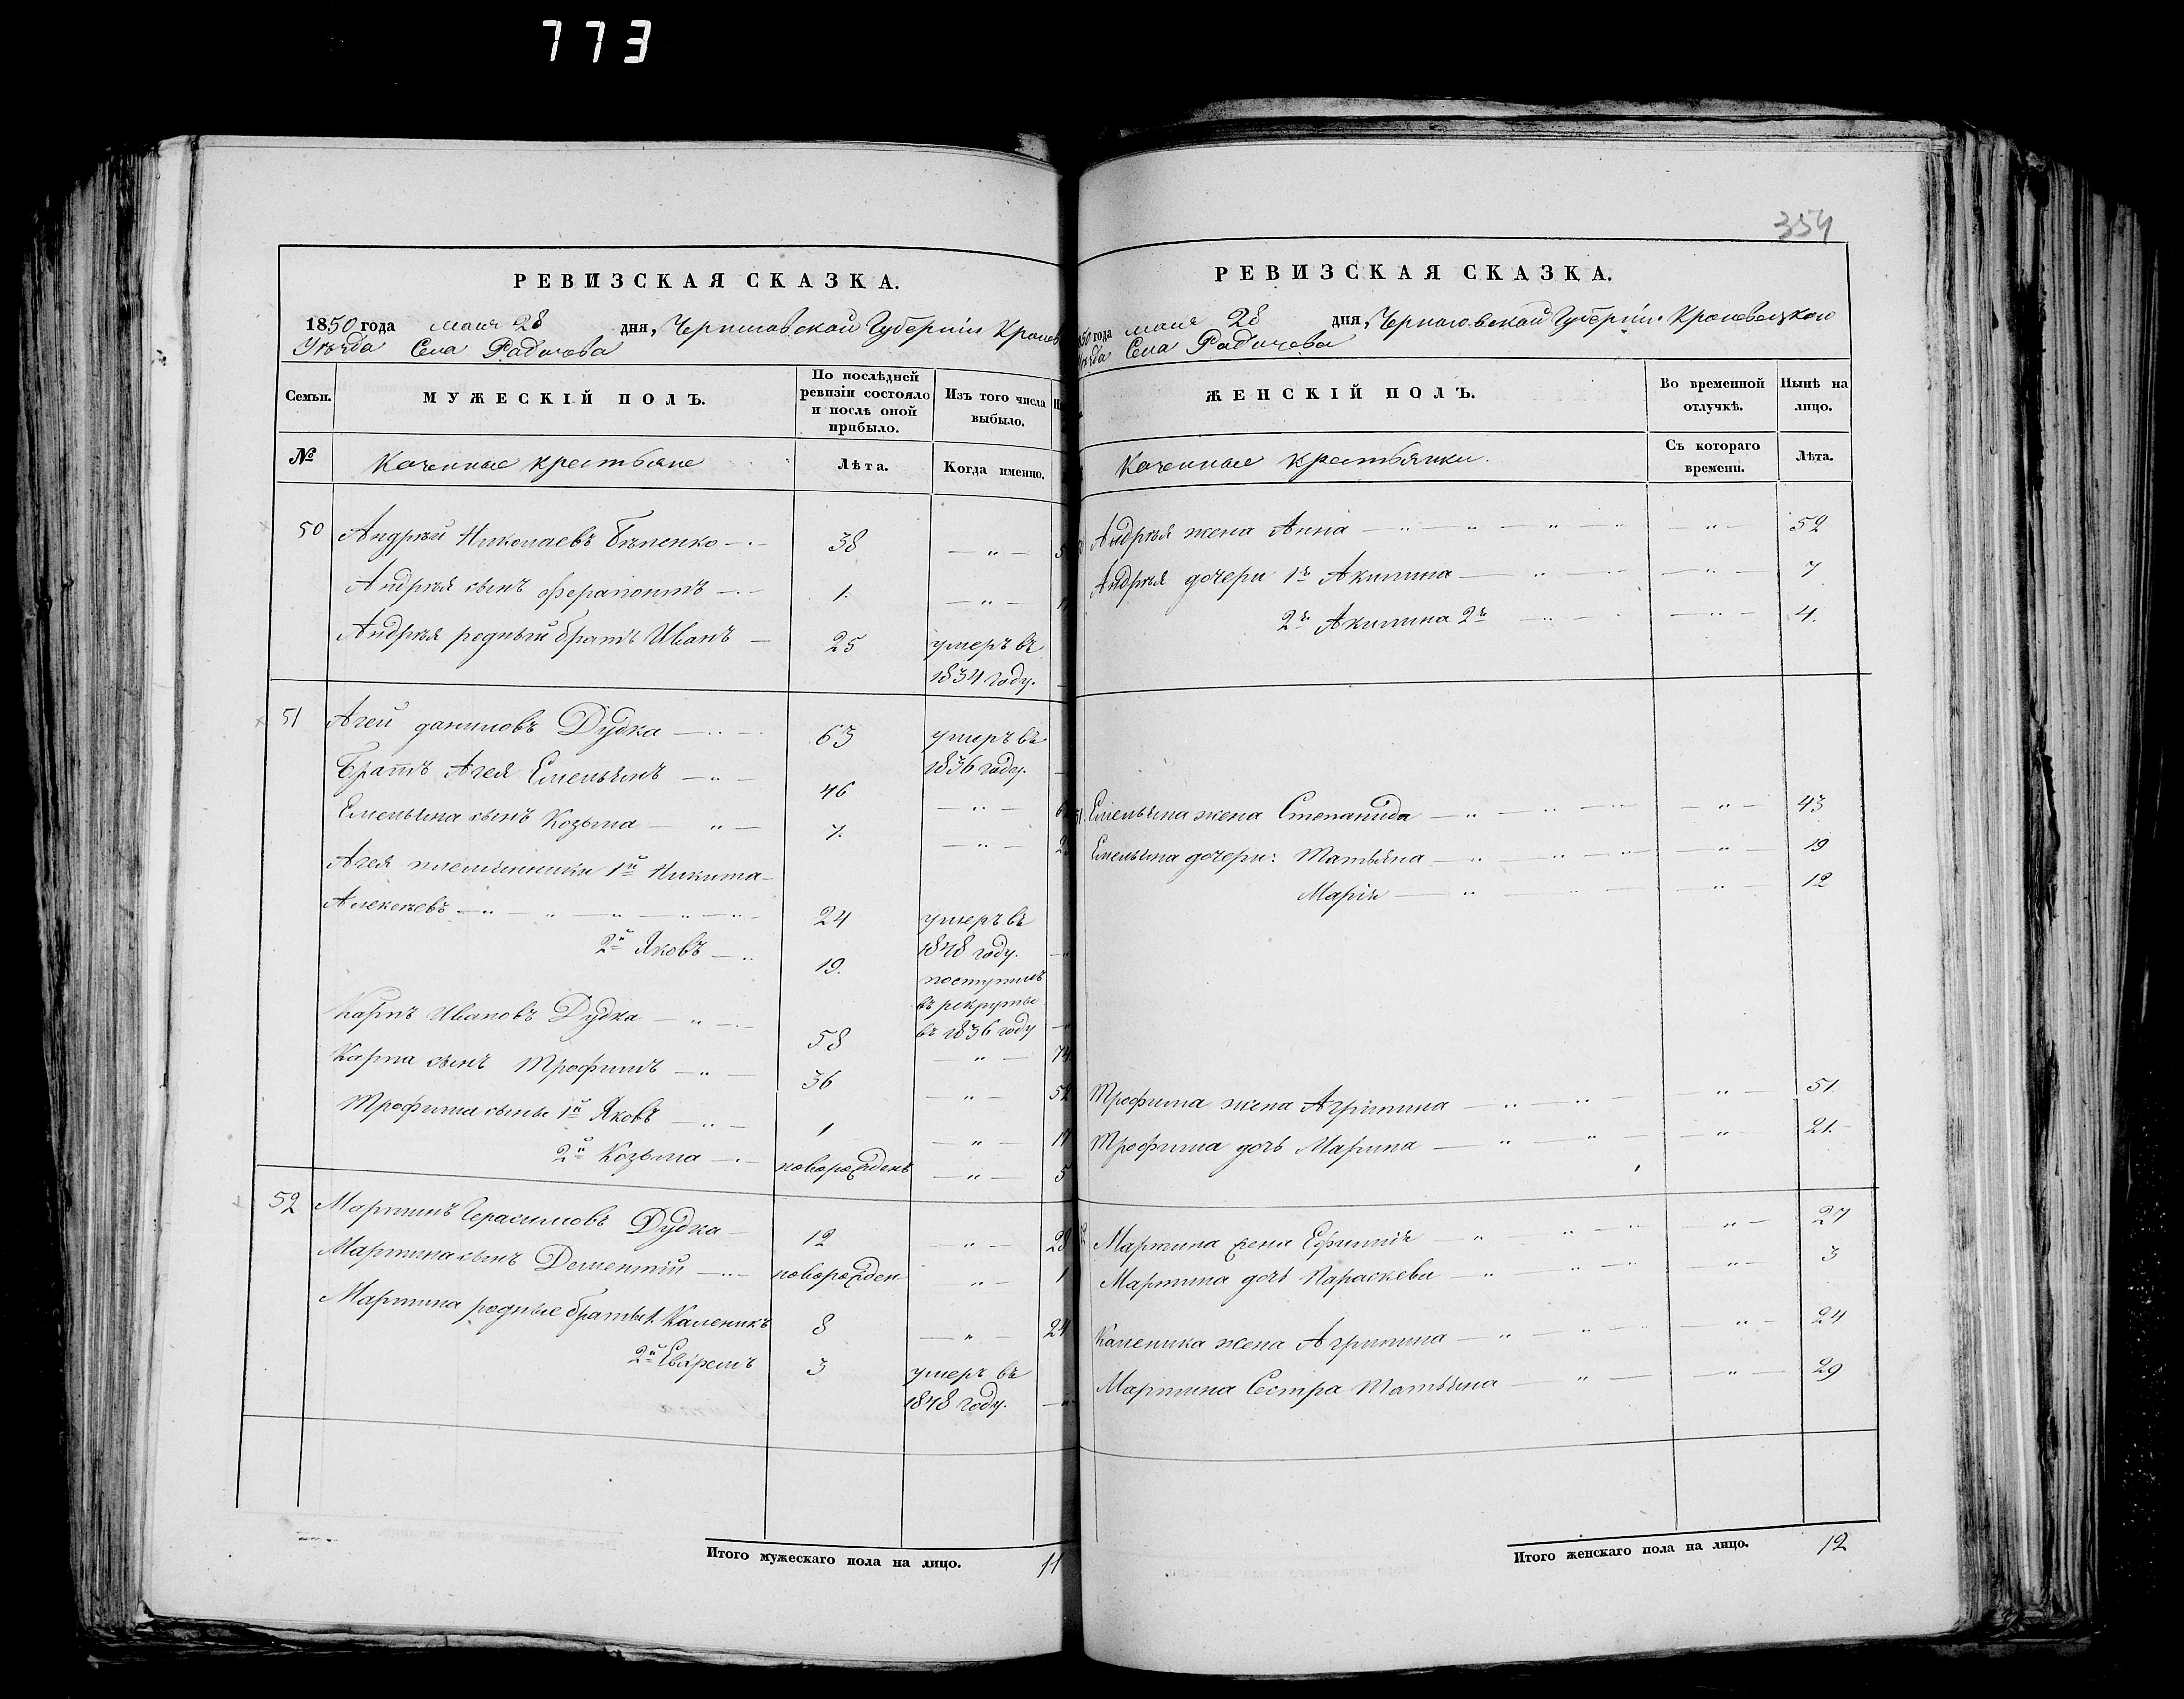 773
РЕВИЗСКАЯ СКАЗКА.
1850 года маия 28 дня, Черниговской Губерніи Кролев
Уѣзда Села Радичева
Семьи.
МУЖЕСКІЙ ПОЛЪ.
По послѣдней ревизіи состояло и послѣ оной прибыло.
Изъ того числа выбыло.
№
Казенные крестьяне
Лѣта.
Когда именно.
50 Андрей Николаевъ 38 — „ —
Андрея сынъ Ферапонтъ 1. — „ —
Андрея родный братъ Иванъ 25 умеръ въ
1834 году.
51 Агей Даниловъ Дудка 63 умеръ въ
1836 году.
Братъ Агея Емельянъ 46 — „ —
Емельяна сынъ Козьма 7. — „ —
Агея племянники 1й Никита
Алексѣевъ 24 умеръ въ
1848 году.
2й Яковъ 19. поступилъ
въ рекруты
въ 1836 году
Карпъ Ивановъ Дудка 58 — „ — 74
Карпа сынъ Трофимъ 36 — „ — 52
Трофима сыны 1й Яковъ 1 — „ — 17
2й Козьма новорожденъ — „ — 5
52 Мартинъ Герасимовъ Дудка 12 — „ — 28
Мартина сынъ Дементій новорожден — „ — 1
Мартина родные братья 1. Каленикъ 8 — „ — 24
2й 3 умеръ въ
1848 году.
Итого мужескаго пола на лицо. 11
354
РЕВИЗСКАЯ СКАЗКА.
50 года маия 28 дня, Черниговской Губерніи Кролевецкого
Села Радичева
ЖЕНСКІЙ ПОЛЪ.
Во временной отлучкѣ.
Нынѣ на лицо.
Казенные крестьянки.
Съ котораго времени.
Лѣта.
Андрея жена Анна — „ — 52
Андрея дочери 1я Акилина — „ — 7
2я Акилина 2я — „ — 4.
Емельяна жена Степанида — „ — 43
Емельяна дочери: Татьяна — „ — 19
Марія — „ — 12
Трофима жена Агрипина — „ — 51
Трофима дочь Марина — „ — 21.
Мартина жена Ефимія — „ — 27
Мартина дочь Параскева — „ — 3
Каленика жена Агрипина — „ — 24
Мартина Сестра Татьяна — „ — 29
Итого женскаго пола на лицо. 12